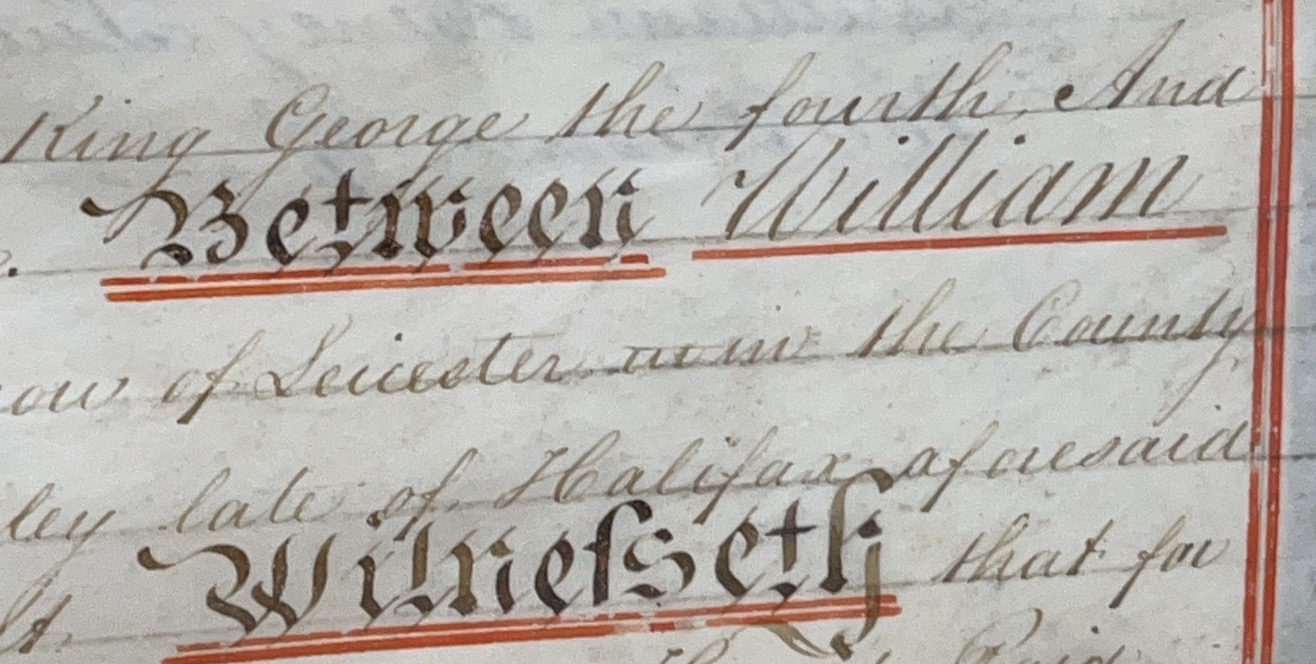 King George the fourth, And
Between William
ow of Leicester now in the County
ley late of Halifax aforesaid
lt. Witneſseth that for